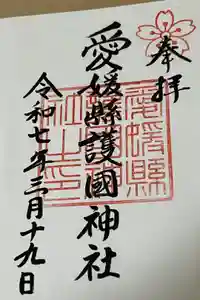 奉拝
愛媛縣護國神社
令和七年三月十九日
愛媛縣